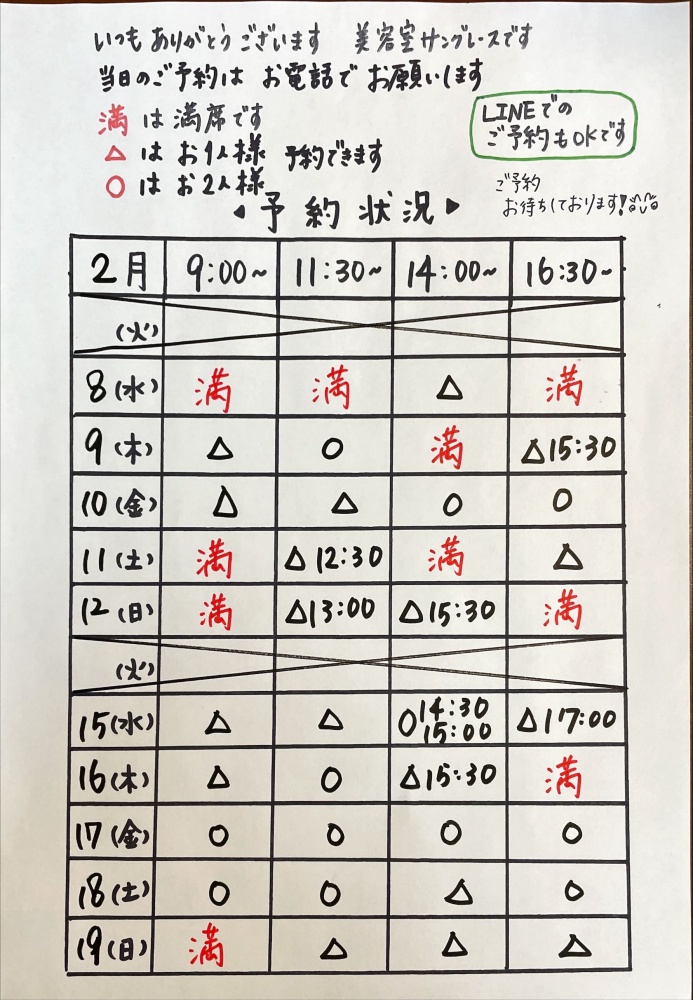 いつもありがとうございます 美容室サングレースです
当日のご予約は お電話で お願いします
満 は 満席です
△ は お1人様 予約できます
○ は お2人様
LINEでの
ご予約もOKです
ご予約
お待ちしております!
◀ 予約状況 ▶
2月 9:00~ 11:30~ 14:00~ 16:30~
(火)
8(水) 満 満 △ 満
9(木) △ ○ 満 △15:30
10(金) △ △ ○ ○
11(土) 満 △12:30 満 △
12(日) 満 △13:00 △15:30 満
(火)
15(水) △ △ ○14:30 15:00 △17:00
16(木) △ ○ △15:30 満
17(金) ○ ○ ○ ○
18(土) ○ ○ △ ○
19(日) 満 △ △ △